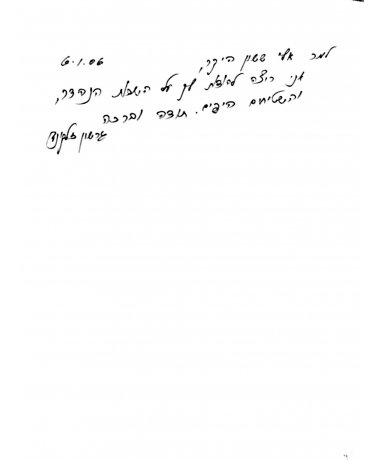 6.1.06
למר אלי ששון היקר,
אני רוצה להודות לך על השרות הנהדר,
והשטיחים היפים. תודה וברכה
גרשון